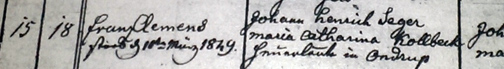 15 18 Franz Clemens Johann Henrich Seger Joh
starb d 10ten März 1849. Maria Catharina Kollbeck ma
Heuerleute in Ondrup